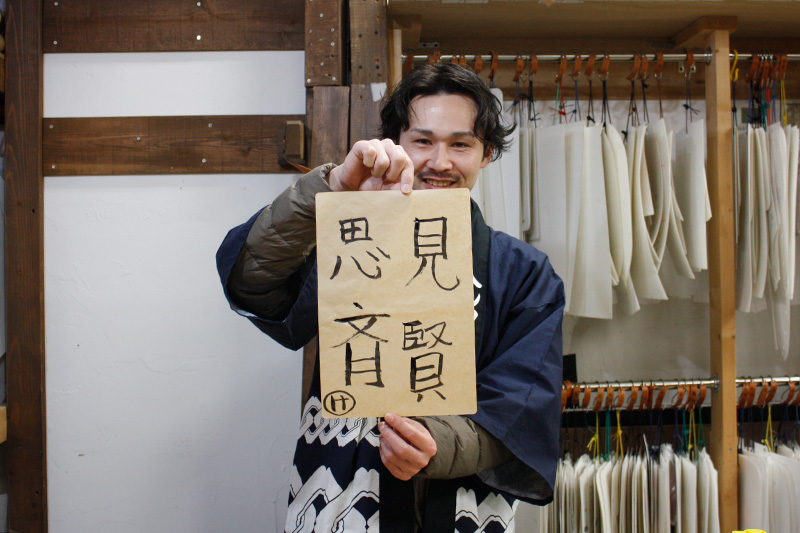 見賢
思斉
け